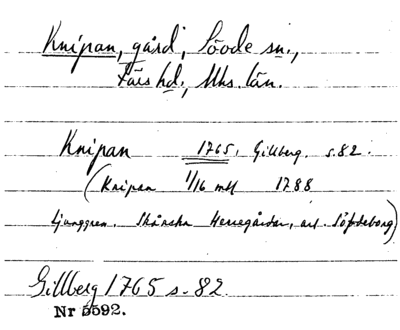 Knipan, gård, Sövde sn.,
Färs hd., Mhs. län.
Knipan 1765, Gillberg. s. 82.
(Knipan 1/16 mtl 1788
Ljunggren. Skånska Herregårdar, art. Söfdeborg)
Gillberg 1765 s. 82.
Nr 5592.